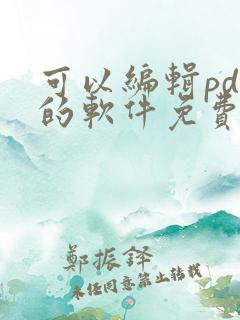 可以編輯pd
的軟件免費
鄭振鐸
未任同意禁止转载